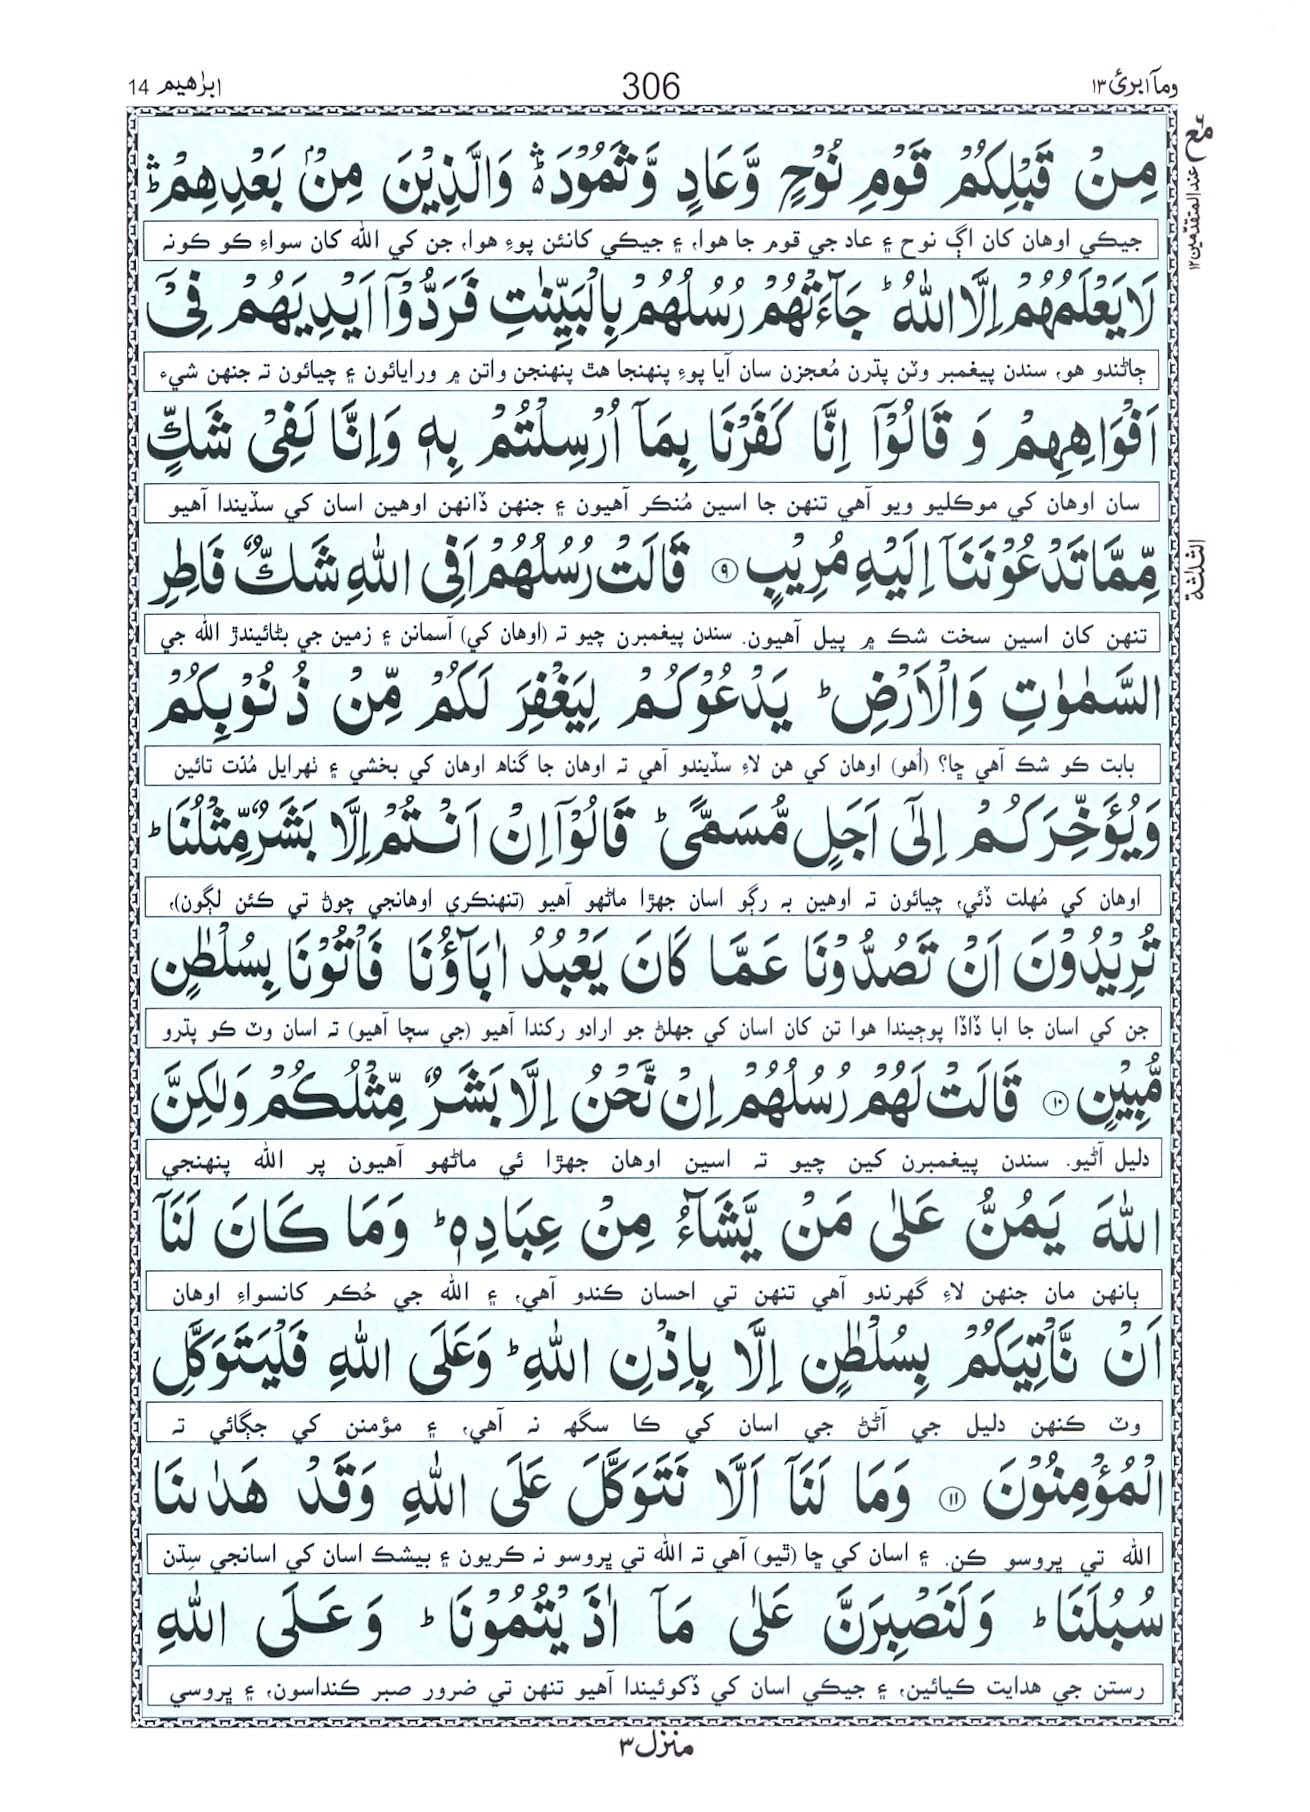 وماۤ ابرئ ١٣
306
ابرٰهيم 14
مع عند المتقدمين ١٢
مِنْ قَبْلِكُمْ قَوْمِ نُوْحٍ وَّعَادٍ وَّثَمُوْدَ ۛ وَالَّذِيْنَ مِنْۢ بَعْدِهِمْ ۛ
جيڪي اوهان کان اڳ نوح ۽ عاد جي قوم جا هوا، ۽ جيڪي کانئن پوءِ هوا، جن کي الله کان سواءِ ڪو ڪونہ
لَا يَعْلَمُهُمْ اِلَّا اللّٰهُ ؕ جَآءَتْهُمْ رُسُلُهُمْ بِالْبَيِّنٰتِ فَرَدُّوْۤا اَيْدِيَهُمْ فِيْۤ
ڄاڻندو هو، سندن پيغمبر وٽن پڌرن مُعجزن سان آيا پوءِ پنهنجا هٿ پنهنجن واتن ۾ ورايائون ۽ چيائون تہ جنهن شيء
اَفْوَاهِهِمْ وَ قَالُوْۤا اِنَّا كَفَرْنَا بِمَاۤ اُرْسِلْتُمْ بِهٖ وَاِنَّا لَفِيْ شَكٍّ
سان اوهان کي موڪليو ويو آهي تنهن جا اسين مُنڪر آهيون ۽ جنهن ڏانهن اوهين اسان کي سڏيندا آهيو
مِّمَّا تَدْعُوْنَنَاۤ اِلَيْهِ مُرِيْبٍ ۹ قَالَتْ رُسُلُهُمْ اَفِي اللّٰهِ شَكٌّ فَاطِرِ
الثلٰثة
تنهن کان اسين سخت شڪ ۾ پيل آهيون. سندن پيغمبرن چيو تہ (اوهان کي) آسمانن ۽ زمين جي بڻائيندڙ الله جي
السَّمٰوٰتِ وَالْاَرْضِ ؕ يَدْعُوْكُمْ لِيَغْفِرَ لَكُمْ مِّنْ ذُنُوْبِكُمْ
بابت ڪو شڪ آهي ڇا؟ (اُهو) اوهان کي هن لاءِ سڏيندو آهي تہ اوهان جا گناه اوهان کي بخشي ۽ ٺهرايل مُدّت تائين
وَيُؤَخِّرَكُمْ اِلٰۤى اَجَلٍ مُّسَمًّى ؕ قَالُوْۤا اِنْ اَنْتُمْ اِلَّا بَشَرٌ مِّثْلُنَا ؕ
اوهان کي مُهلت ڏئي، چيائون تہ اوهين بہ رڳو اسان جهڙا ماڻهو آهيو (تنهنڪري اوهانجي چوڻ تي ڪئن لڳون)،
تُرِيْدُوْنَ اَنْ تَصُدُّوْنَا عَمَّا كَانَ يَعْبُدُ اٰبَآؤُنَا فَاْتُوْنَا بِسُلْطٰنٍ
جن کي اسان جا ابا ڏاڏا پوڄيندا هوا تن کان اسان کي جهلڻ جو ارادو رکندا آهيو (جي سچا آهيو) تہ اسان وٽ ڪو پڌرو
مُّبِيْنٍ ۱۰ قَالَتْ لَهُمْ رُسُلُهُمْ اِنْ نَّحْنُ اِلَّا بَشَرٌ مِّثْلُكُمْ وَلٰكِنَّ
دليل آڻيو. سندن پيغمبرن کين چيو تہ اسين اوهان جهڙا ئي ماڻهو آهيون پر الله پنهنجي
اللّٰهَ يَمُنُّ عَلٰى مَنْ يَّشَآءُ مِنْ عِبَادِهٖ ؕ وَمَا كَانَ لَنَاۤ
ٻانهن مان جنهن لاءِ گهرندو آهي تنهن تي احسان ڪندو آهي، ۽ الله جي حُڪم کانسواءِ اوهان
اَنْ نَّاْتِيَكُمْ بِسُلْطٰنٍ اِلَّا بِاِذْنِ اللّٰهِ ؕ وَعَلَى اللّٰهِ فَلْيَتَوَكَّلِ
وٽ ڪنهن دليل جي آڻڻ جي اسان کي ڪا سگهہ نہ آهي، ۽ مؤمنن کي جڳائي تہ
الْمُؤْمِنُوْنَ ۱۱ وَمَا لَنَاۤ اَلَّا نَتَوَكَّلَ عَلَى اللّٰهِ وَقَدْ هَدٰىنَا
الله تي ڀروسو ڪن. ۽ اسان کي ڇا (ٿيو) آهي تہ الله تي ڀروسو نہ ڪريون ۽ بيشڪ اسان کي اسانجي سِڌن
سُبُلَنَا ؕ وَلَنَصْبِرَنَّ عَلٰى مَاۤ اٰذَيْتُمُوْنَا ؕ وَعَلَى اللّٰهِ
رستن جي هدايت ڪيائين، ۽ جيڪي اسان کي ڏکوئيندا آهيو تنهن تي ضرور صبر ڪنداسون، ۽ ڀروسي
منزل ٣